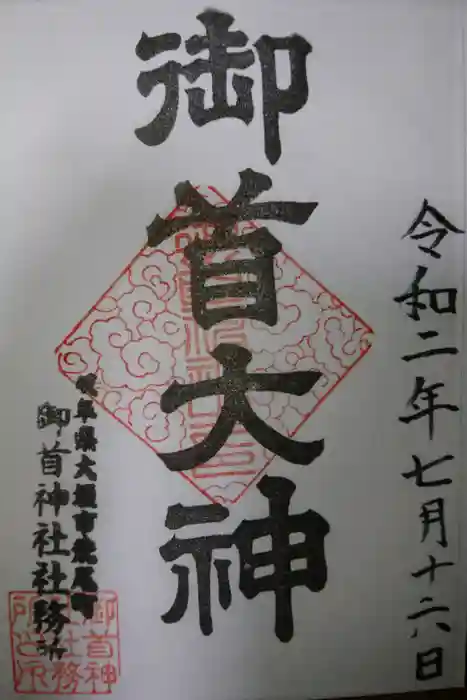 令和二年七月十六日
御首大神
岐阜県大垣市荒尾町
御首神社社務所
御首神
社社務
所之印